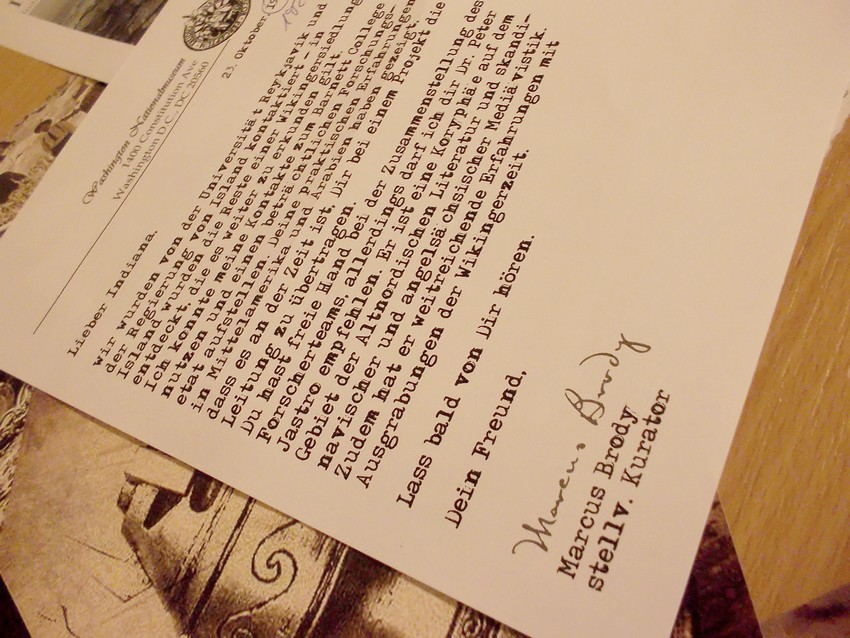 Washington Nationalmuseum
1400 Constitution Ave
Washington D.C., DC 20560
23. Oktober
Lieber Indiana.
wir wurden von der Universität Reykjavik und
der Regierung von Island kontaktiert - in
Island wurden die Reste einer Wikingersiedlung
entdeckt, die es weiter zu erkunden gilt.
Ich konnte meine Kontakte zum Barnett College
nutzen und einen beträchtlichen Forschungs-
etat aufstellen. Deine praktischen Erfahrungen
in Mittelamerika und Arabien haben gezeigt,
dass es an der Zeit ist, Dir bei einem Projekt die
Leitung zu übertragen.
Du hast freie Hand bei der Zusammenstellung des
Forscherteams, allerdings darf ich dir Dr. Peter
Jastro empfehlen. Er ist eine Koryphäe auf dem
Gebiet der Altnordischen Literatur und skandi-
navischer und angelsächsischer Mediävistik.
Zudem hat er weitreichende Erfahrungen mit
Ausgrabungen der Wikingerzeit.
Lass bald von Dir hören.
Dein Freund,
Marcus Brody
Marcus Brody
stellv. Kurator